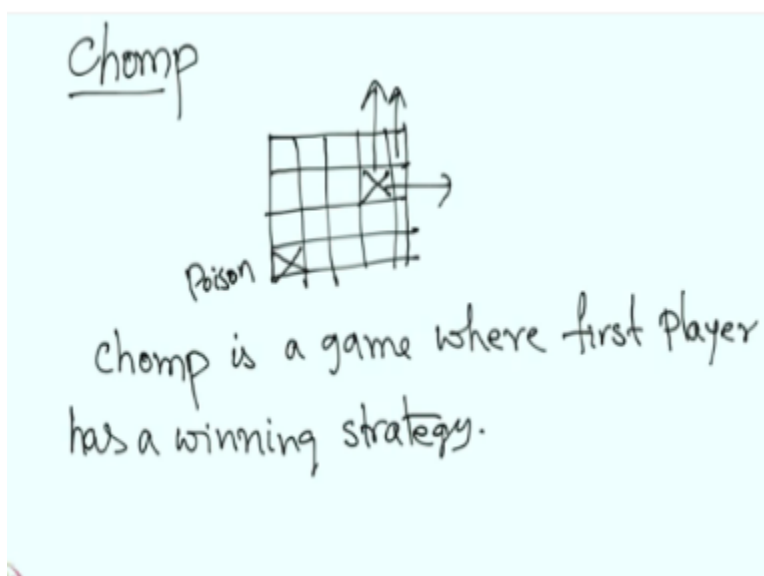 Chomp
Poison
Chomp is a game where first player
has a winning strategy.